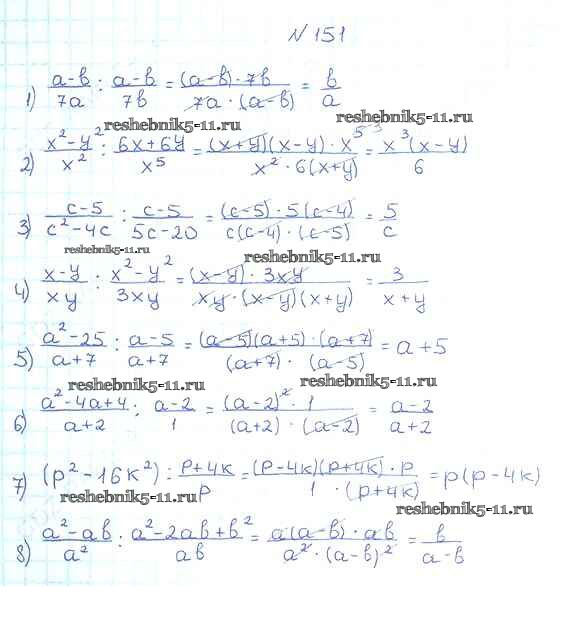 № 151
1) (a-b)/(7a) : (a-b)/(7b) = ((a-b)·7b)/(7a·(a-b)) = b/a
reshebnik5-11.ru reshebnik5-11.ru
2) (x²-y²)/x² : (6x+6y)/x⁵ = ((x+y)(x-y)·x⁵ ³)/(x²·6(x+y)) = (x³(x-y))/6
3) (c-5)/(c²-4c) : (c-5)/(5c-20) = ((c-5)·5(c-4))/(c(c-4)·(c-5)) = 5/c
reshebnik5-11.ru reshebnik5-11.ru
4) (x-y)/(xy) : (x²-y²)/(3xy) = ((x-y)·3xy)/(xy·(x-y)(x+y)) = 3/(x+y)
5) (a²-25)/(a+7) : (a-5)/(a+7) = ((a-5)(a+5)·(a+7))/((a+7)·(a-5)) = a+5
reshebnik5-11.ru reshebnik5-11.ru
6) (a²-4a+4)/(a+2) : (a-2)/1 = ((a-2)²·1)/((a+2)·(a-2)) = (a-2)/(a+2)
7) (p²-16k²) : (p+4k)/p = ((p-4k)(p+4k)·p)/(1·(p+4k)) = p(p-4k)
reshebnik5-11.ru reshebnik5-11.ru
8) (a²-ab)/a² : (a²-2ab+b²)/(ab) = (a(a-b)·ab)/(a²·(a-b)²) = b/(a-b)